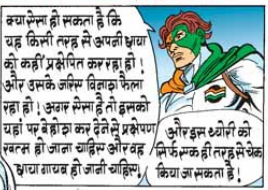 क्या ऐसा हो सकता है कि
यह किसी तरह से अपनी छाया
को कहीं प्रक्षेपित कर रहा हो!
और उसके जरिए विनाश फैला
रहा हो! अगर ऐसा है तो इसको
यहां पर बेहोश कर देने से प्रक्षेपण
खत्म हो जाना चाहिए और वह
छाया गायब हो जानी चाहिए!
और इस थ्योरी को
सिर्फ एक ही तरह से चेक
किया जा सकता है!